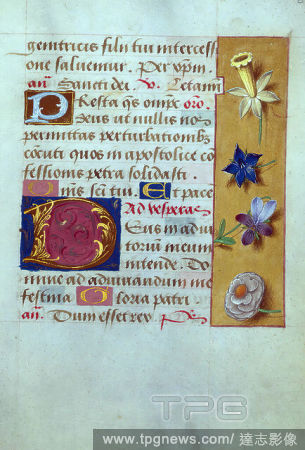 genitricis filii tui intercess
one saluemur. Per xpm.
an̄. Sancti dei. v. Letam
Presta q̄s om̄pc oro.
Deus ut nullis nos
permittas perturbationibꝫ
cōcuti quos in apostolice cō
fessionis petra solidasti.
Om̄s scī tui. Et pace
Ad vesperas
Deus in adiu
torium meum
intende. Do
mine ad adiuuandum me
festina Gloria patri
an̄. Dum esset rex Ps
TPG
www.tpgnews.com/達志影像